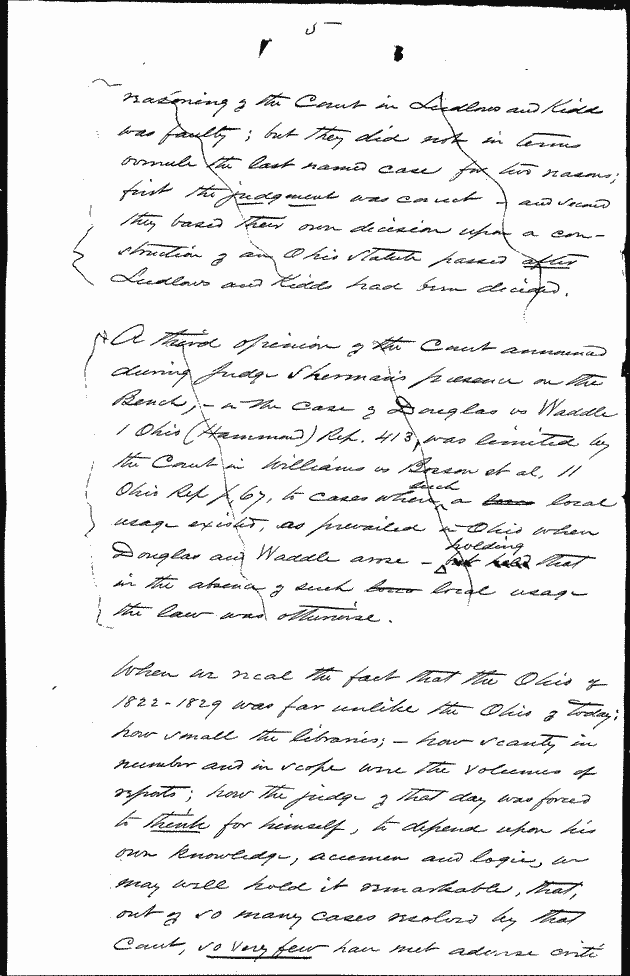 5
reasoning of the Court in Ludlows and Kidd
was faulty; but they did not in terms
overrule the last named case for two reasons;
first the judgment was correct – and second
they based their own decision upon a con–
struction of an Ohio Statute passed after
Ludlows and Kidds had been decided.
A third opinion of the Court announced
during Judge Sherman's presence on the
Bench, – in the case of Douglas vs Waddle
1 Ohio (Hammond) Rep. 413, was limited by
the Court in Williams vs et al, 11
such
Ohio Rep p, 67, to cases where a local
usage existed, as prevailed in Ohio when
holding
Douglas and Waddle arose – but held that
in the absence of such loco local usage
the law was otherwise.
When we recal the fact that the Ohio of
1822-1829 was far unlike the Ohio of Today;
how small the libraries; – how scanty in
number and in scope were the volumes of
reports; how the judge of that day was forced
to think for himself, to depend upon his
own knowledge, acumen and logic, we
may well hold it remarkable, that,
out of so many cases resolved by that
Court, so very few have met adverse criti